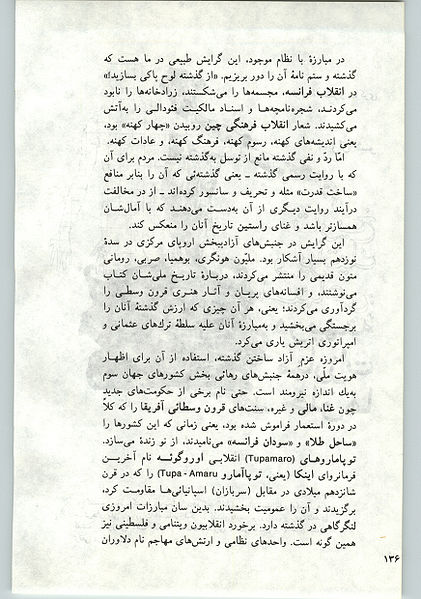 در مبارزهٔ با نظام موجود، این گرایش طبیعی در ما هست که
گذشته و ستم نامهٔ آن را دور بریزیم. «از گذشته لوح پاکی بسازید!»
در انقلاب فرانسه، مجسمه‌ها را می‌شکستند، زرادخانه‌ها را نابود
می‌کردند، شجره‌نامچه‌ها و اسناد مالکیت فئودالی را به‌آتش
می‌کشیدند. شعار انقلاب فرهنگی چین روبیدن «چهار کهنه» بود،
یعنی اندیشه‌های کهنه، رسوم کهنه، فرهنگ کهنه، و عادات کهنه.
امّا ردّ و نفی گذشته مانع از توسل به‌گذشته نیست. مردم برای آن
که با روایت رسمی گذشته ـ یعنی گذشته‌ئی که آن را بنابر منافع
«ساخت قدرت» مثله و تحریف و سانسور کرده‌اند ـ از در مخالفت
درآیند روایت دیگری از آن به‌دست می‌دهند که با آمال‌شان
همسازتر باشد و غنای راستین تاریخ آنان را منعکس کند.
این گرایش در جنبش‌های آزادیبخش اروپای مرکزی در سدهٔ
نوزدهم بسیار آشکار بود. ملیّون هونگری، بوهمیا، صربی، رومانی
متون قدیمی را منتشر می‌کردند، دربارهٔ تاریخ ملی‌شان کتاب
می‌نوشتند، و افسانه‌های پریان و آثار هنری قرون وسطی را
گردآوری می‌کردند؛ یعنی، هر آن چیزی که ارزش گذشتهٔ آنان را
برجستگی می‌بخشید و به‌مبارزهٔ آنان علیه سلطهٔ ترک‌های عثمانی و
امپراتوری اتریش یاری می‌کرد.
امروزه عزمِ آزاد ساختن گذشته، استفاده از آن برای اظهار
هویت ملّی، درهمهٔ جنبش‌های رهائی بخش کشورهای جهان سوم
به‌یک اندازه نیرومند است. حتی نام برخی از حکومت‌های جدید
چون غنا، مالی و غیره، سنت‌های قرون وسطائی آفریقا را که کلاً
در دورهٔ استعمار فراموش شده بود، یعنی زمانی که این کشورها را
«ساحل طلا» و «سودان فرانسه» می‌نامیدند، از نو زنده می‌سازد.
توپاماروهای (Tupamaro) انقلابی اوروگوئه نام آخرین
فرمانروای اینکا (یعنی، توپاآمارو Tupa-Amaru) را که در قرن
شانزدهم میلادی در مقابل (سربازان) اسپانیائی‌ها مقاومت کرد،
برگزیدند و آن را عمومیت بخشیدند. بدین سان مبارزات امروزی
لنگرگاهی در گذشته دارد. برخورد انقلابیون ویتنامی و فلسطینی نیز
همین گونه است. واحدهای نظامی و ارتش‌های مهاجم نام دلاوران
۱۳۶